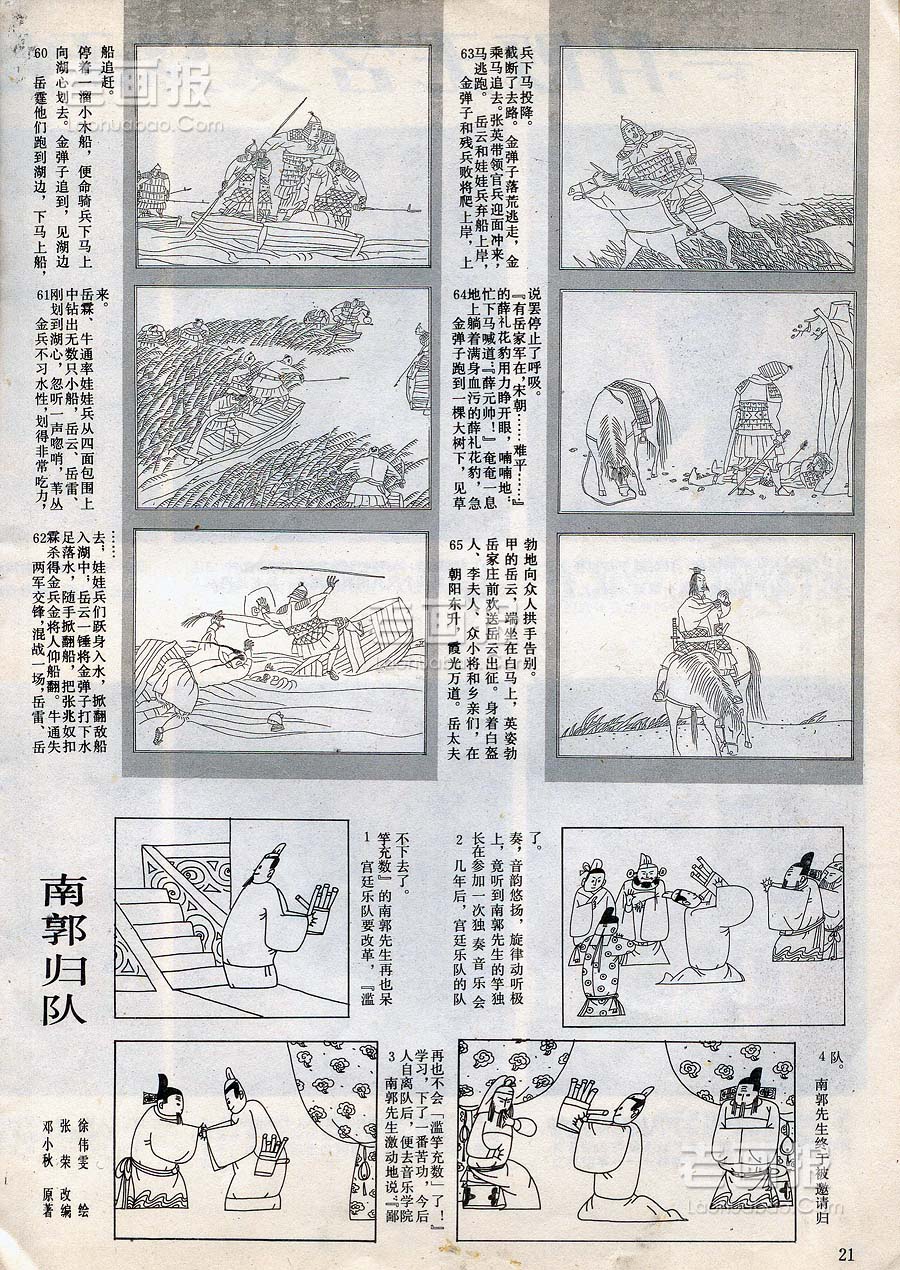 60 岳霆他们跑到湖边，下马上船，
向湖心划去。金弹子追到，见湖边
停着一溜小木船，便命骑兵下马上
船追赶。
61 金兵不习水性，划得非常吃力，
刚划到湖心，忽听一声唿哨，苇丛
中钻出无数只小船，岳云、岳雷、
岳霖、牛通率娃娃兵从四面包围上
来。
62 两军交锋，混战一场，岳雷、岳
霖杀得金兵金将人仰船翻。牛通失
足落水，随手掀翻船，把张兆奴扣
入湖中，岳云一锤将金弹子打下水
去，娃娃兵们跃身入水，掀翻敌船
……
63 金弹子和残兵败将爬上岸，上
马逃跑。岳云和娃娃兵弃船上岸，
乘马追去。张英带领官兵迎面冲来，
截断了去路。金弹子落荒逃走，金
兵下马投降。
64 金弹子跑到一棵大树下，见草
地上躺着满身血污的薛礼花豹，急
忙下马喊道：『薛元帅！』奄奄一息
的薛礼花豹用力睁开眼，喃喃地：
『有岳家军在，宋朝……难平……』
说罢停止了呼吸。
65 朝阳东升，霞光万道。岳太夫
人、李夫人、众小将和乡亲们，在
岳家庄前欢送岳云出征。身着白盔
甲的岳云，端坐在白马上，英姿勃
勃地向众人拱手告别。
南郭归队
徐伟雯 绘
张荣 改编
邓小秋 原著
1 宫廷乐队要改革，『滥
竽充数』的南郭先生再也呆
不下去了。
2 几年后，宫廷乐队的队
长在参加一次独奏音乐会
上，竟听到南郭先生的竽独
奏，音韵悠扬，旋律动听极
了。
3 南郭先生激动地说：『鄙
人自离队后，便去音乐学院
学习，下了一番苦功，今后
再也不会「滥竽充数」了！』
4 南郭先生终于被邀请归
队。
21
老画报
Laohuabao.Com
老画报
Laohuabao.Com
老画报
Laohuabao.Com